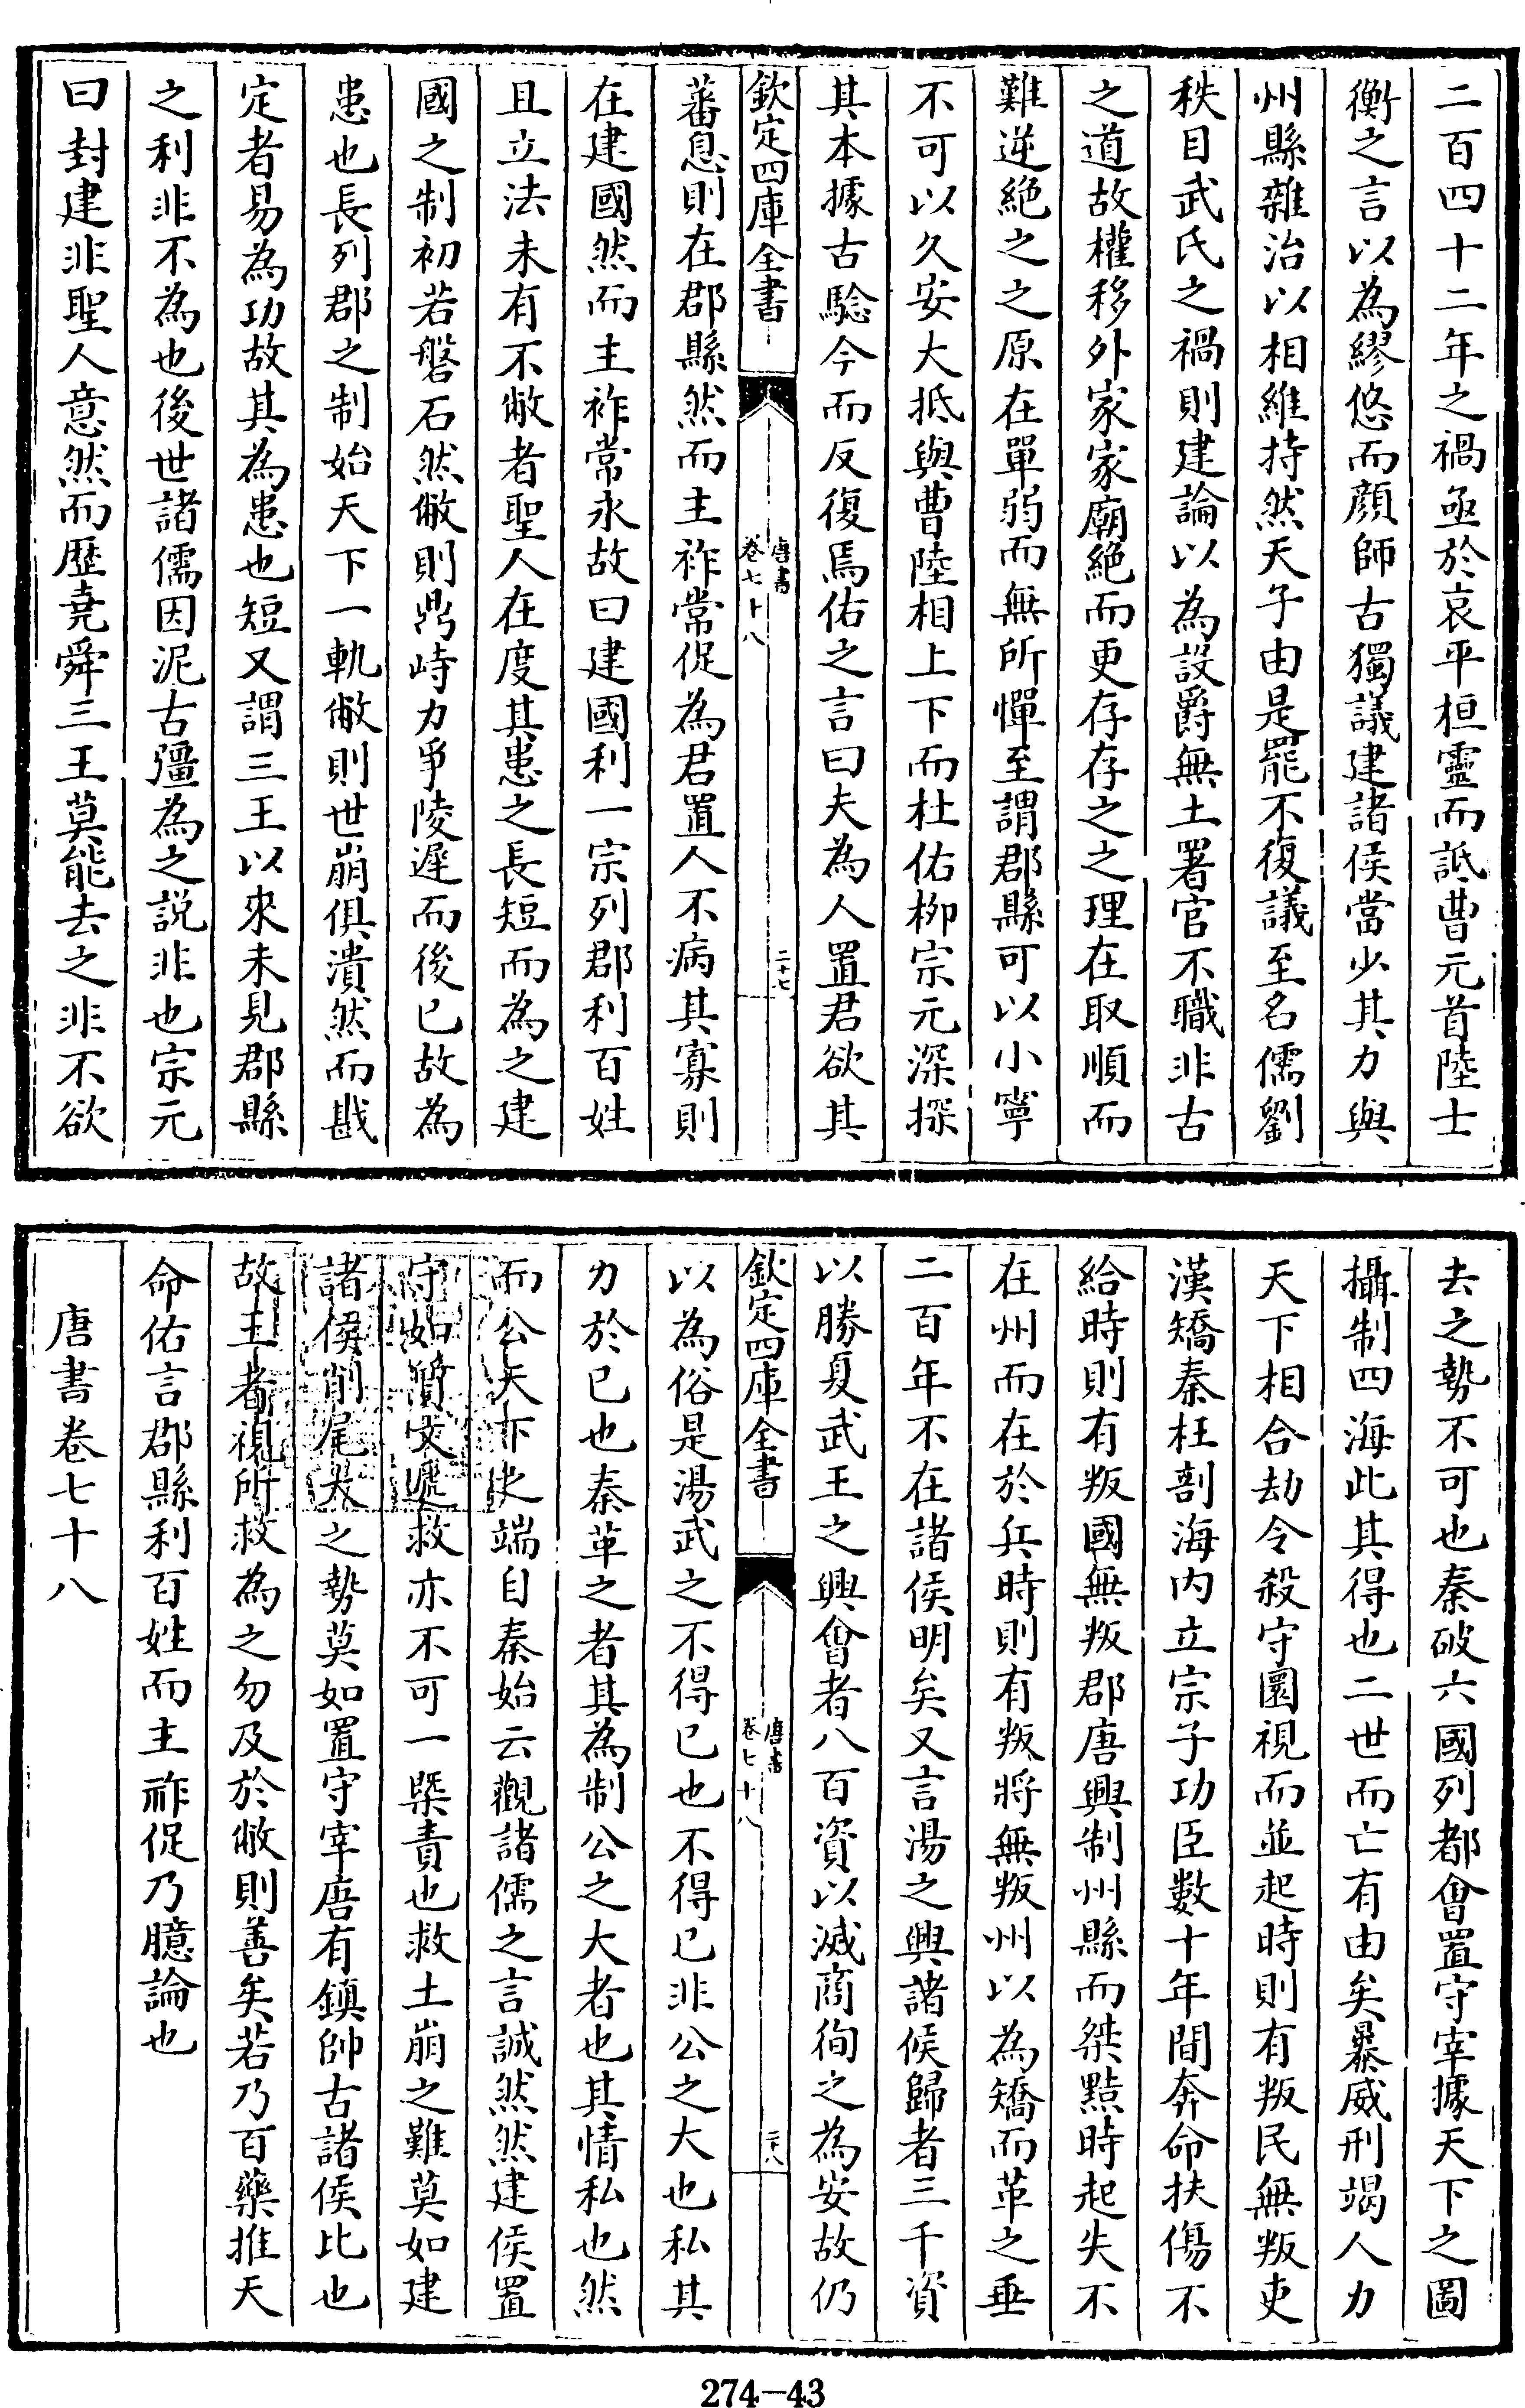 二百四十二年之禍亟於哀平桓靈而詆曹元首陸士
衡之言以為繆悠而顏師古獨議建諸侯當少其力與
州縣雜治以相維持然天子由是罷不復議至名儒劉
秩目武氏之禍則建論以為設爵無土署官不職非古
之道故權移外家家廟絶而更存存之之理在取順而
難逆絶之之原在單弱而無所憚至謂郡縣可以小寧
不可以久安大抵與曹陸相上下而杜佑栁宗元深探
其本據古騐今而反復焉佑之言曰夫為人置君欲其
欽定四庫全書
唐書
卷七十八
二十七
蕃息則在郡縣然而主祚常促為君置人不病其寡則
在建國然而主祚常永故曰建國利一宗列郡利百姓
且立法未有不敝者聖人在度其患之長短而為之建
國之制初若磐石然敝則鼎峙力爭陵遲而後已故為
患也長列郡之制始天下一軌敝則世崩俱潰然而戡
定者易為功故其為患也短又謂三王以來未見郡縣
之利非不為也後世諸儒因泥古彊為之説非也宗元
曰封建非聖人意然而歴堯舜三王莫能去之非不欲
去之勢不可也秦破六國列都㑹置守宰據天下之圖
攝制四海此其得也二世而亡有由矣暴威刑竭人力
天下相合劫令殺守圜視而並起時則有叛民無叛吏
漢矯秦枉剖海内立宗子功臣數十年間奔命扶傷不
給時則有叛國無叛郡唐興制州縣而桀黠時起失不
在州而在於兵時則有叛將無叛州以為矯而革之垂
二百年不在諸侯明矣又言湯之興諸侯歸者三千資
以勝夏武王之興㑹者八百資以滅商徇之為安故仍
欽定四庫全書
唐書
卷七十八
二十八
以為俗是湯武之不得已也不得已非公之大也私其
力於已也秦革之者其為制公之大者也其情私也然
而公天下之端自秦始云觀諸儒之言誠然然建侯置
守如質文遞救亦不可一槩責也救土崩之難莫如建
諸侯削尾大之勢莫如置守宰唐有鎮帥古諸侯比也
故王者視所救為之勿及於敝則善矣若乃百藥推天
命佑言郡縣利百姓而主祚促乃臆論也
唐書卷七十八
274-43